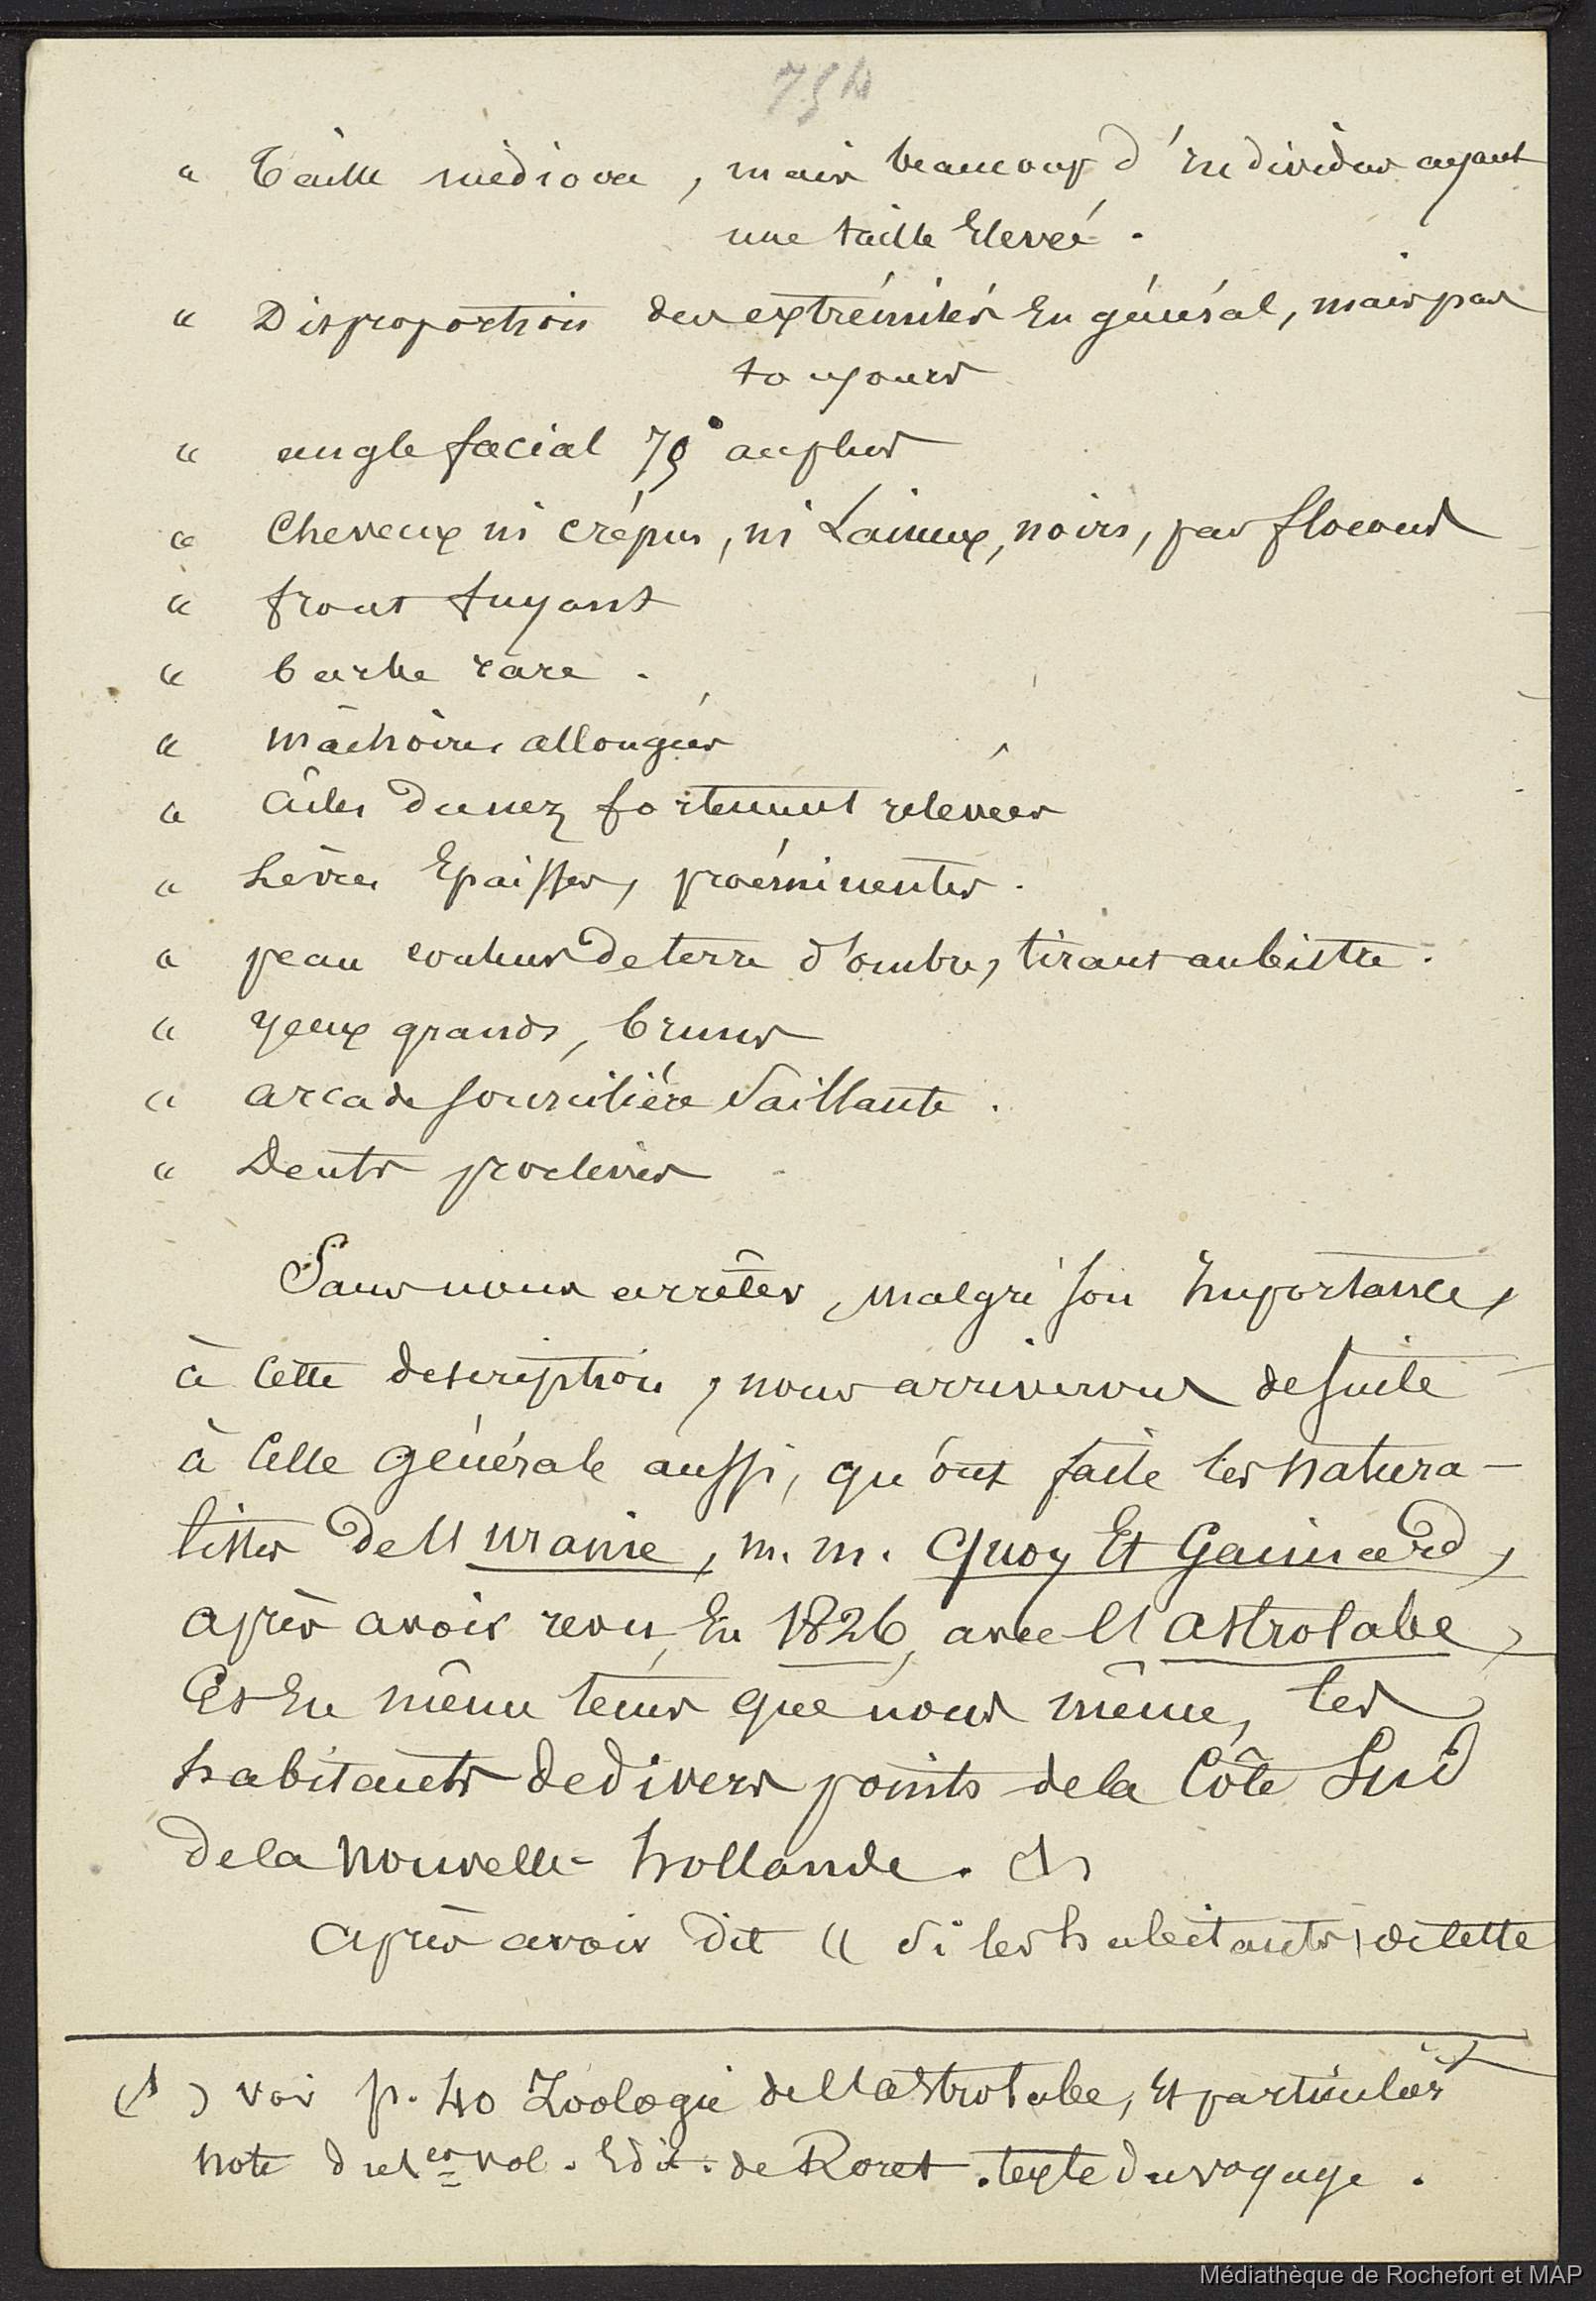 754
" Taille médiocre, mais beaucoup d'individus ayant
une taille Elevée.
" Disproportion des extrémités En général, mais pas
toujours
" angle facial 75° au plus
" Cheveux ni crépus, ni Laineux, noirs, par flocons
" front fuyant
" barbe rare.
" mâchoires allongées
" ailes du nez fortement relevées
" Lèvres Epaisses, proéminentes.
" peau couleur de terre d'ombre, tirant au bistre.
" yeux grands, bruns
" arcade sourcilière Saillante.
" Dents proclives
Sans nous arrêter, malgré son Importance,
à cette description, nous arriverons de suite
à Celle générale aussi, qu'ont faite les natura-
listes de l'uranie, m. m. Quoy Et Gaimard,
après avoir revu, En 1826, avec l'astrolabe,
Et En même tems que nous même, les
habitants de divers points de la Côte Sud
de la nouvelle-hollande. (1)
après avoir dit " Si les habitants de cette
(1) voir p. 40 Zoologie de l'astrolabe, Et particulièr^t
note du 1er vol. Edit. de Roret. texte du voyage.
Médiathèque de Rochefort et MAP